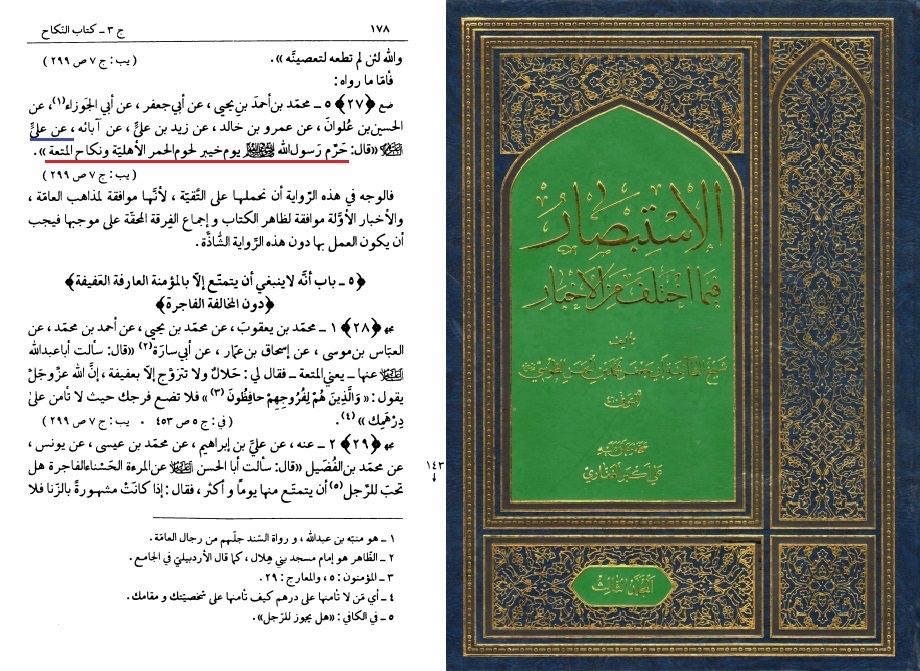 ١٧٨
ج ٣ ـ كتاب النّكاح
والله لئن لم تطعه لتعصينَّه». (يب: ج ٧ ص ٢٩٩)
فأمّا ما رواه:
ضع ﴿٢٧﴾ ٥ ـ محمّد بن أحمدَ بنِ يحيى، عن أبي جعفر، عن أبي الجَوزاء(١)، عن
الحسين بن عُلوانَ، عن عمرو بن خالد، عن زيد بن عليٍّ، عن آبائه، عن عليٍّ
عليه السلام «قال: حَرَّم رَسول الله صلى الله عليه وآله يوم خيبر لحوم الحمر الأهليّة ونكاح المتعة».
(يب: ج ٧ ص ٢٩٩)
فالوجه في هذه الرِّواية أن نحملها على التَّقيّة، لأنّها موافقة لمذاهب العامّة،
والأخبار الأوّلة موافقة لظاهر الكتاب و إجماع الفِرقة المحقّة على موجبها فيجب
أن يكون العمل بها دون هذه الرِّواية الشّاذَّة.
﴿٥ ـ باب أنّه لاينبغي أن يتمتّع إلّا بالمؤمنة العارفة العَفيفة﴾
﴿دون المخالفة الفاجرة﴾
﴿٢٨﴾ ١ ـ محمّد بن يعقوبَ، عن محمّد بن يحيى، عن أحمد بن محمّد، عن
العبّاس بن موسى، عن إسحاق بن عمّار، عن أبي سارَة(٢) «قال: سألت أباعبدالله
عليه السلام عنها ـ يعني المتعة ـ فقال لي: حَلالٌ ولا تتزوَّج إلّا بعفيفة، إنَّ الله عزَّوجلَّ
يقول: «وَالَّذِينَ هُمْ لِفُرُوجِهِمْ حافِظُونَ(٣)» فلا تضع فرجك حيث لا تأمن على
دِرْهَمِك»(٤). (في: ج ٥ ص ٤٥٣ ٠ يب: ج ٧ ص ٢٩٩)
﴿٢٩﴾ ٢ ـ عنه، عن عليِّ بن إبراهيم، عن محمّد بن عيسى، عن يونس،
عن محمّد بن الفُضَيل «قال: سألت أبا الحسن عليه السلام عن المرءة الحَسْناء الفاجرة هل
١٤٣
تحبّ للرَّجل(٥) أن يتمتّع منها يوماً و أكثر، فقال: إذا كانَتْ مشهورةً بالزِّنا فلا
١ ـ هو منبّه بن عبدالله، و رواة السّند جلّهم من رجال العامّة.
٢ ـ الظّاهر هو إمام مسجد بني هِلال، كما قال الأردبيليّ في الجامع.
٣ ـ المؤمنون: ٥، والمعارج: ٢٩.
٤ ـ أي مَن لا تأمنها على درهم كيف تأمنها على شخصيّتك و مقامك.
٥ ـ في الكافي: «هل يجوز للرّجل».
الاستبصار
فيما اختلف من الأخبار
تأليف
شيخ الطائفة أبي جعفر محمد بن الحسن الطوسي
علي أكبر الغفاري
المجلد الثالث